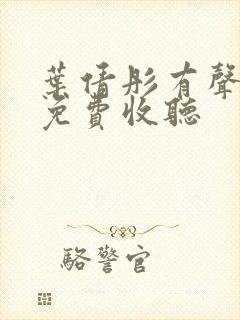 葉倩彤有聲
免費收聽
駱警官